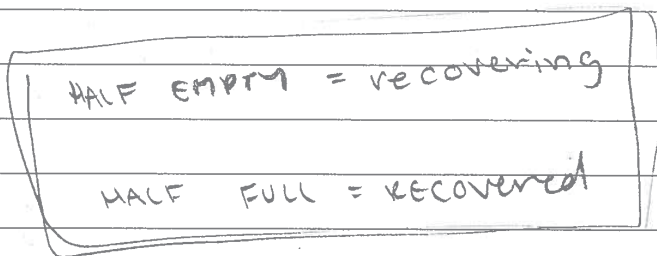 HALF EMPTY = recovering
HALF FULL = RECOvered